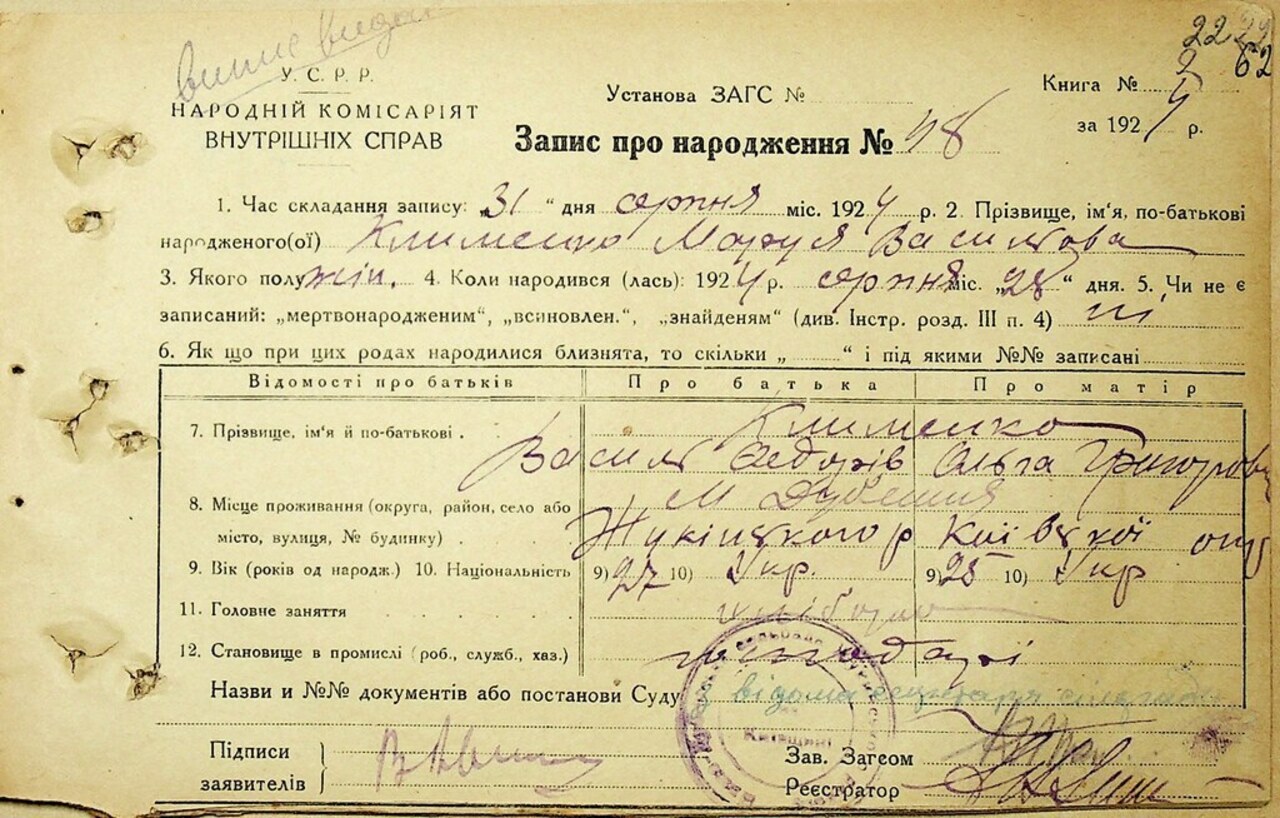 22
62
У. С. Р. Р.
НАРОДНІЙ КОМІСАРІЯТ
ВНУТРІШНІХ СПРАВ
Установа ЗАГС №
Книга № 2
за 1924 р.
Запис про народження № 48
1. Час складання запису: „31“ дня серпня міс. 1924 р. 2. Прізвище, ім'я, по-батькові
народженого(ої) Клименко Маруся Васильова
3. Якого полу жін. 4. Коли народився (лась): 1924 р. серпня міс. „28“ дня. 5. Чи не є
записаний: „мертвонародженим“, „всиновлен.“, „знайденям“ (див. Інстр. розд. III п. 4) ні
6. Як що при цих родах народилися близнята, то скільки „ “ і під якими №№ записані
Відомості про батьків Про батька Про матір
7. Прізвище, ім'я й по-батькові . Клименко
Василь Федорів Ольга Григоров
8. Місце проживання (округа, район, село або м
місто, вулиця, № будинку) . р Київської окр
9. Вік (років од народж.) 10. Національність 9) 27 10) Укр. 9) 25 10) Укр
11. Головне заняття хлібороб
12. Становище в промислі (роб., служб., хаз.) господарі
Назви и №№ документів або постанови Суду З відома секретаря
Київщині
Підписи
заявителів
Зав. Загсом
Реєстратор